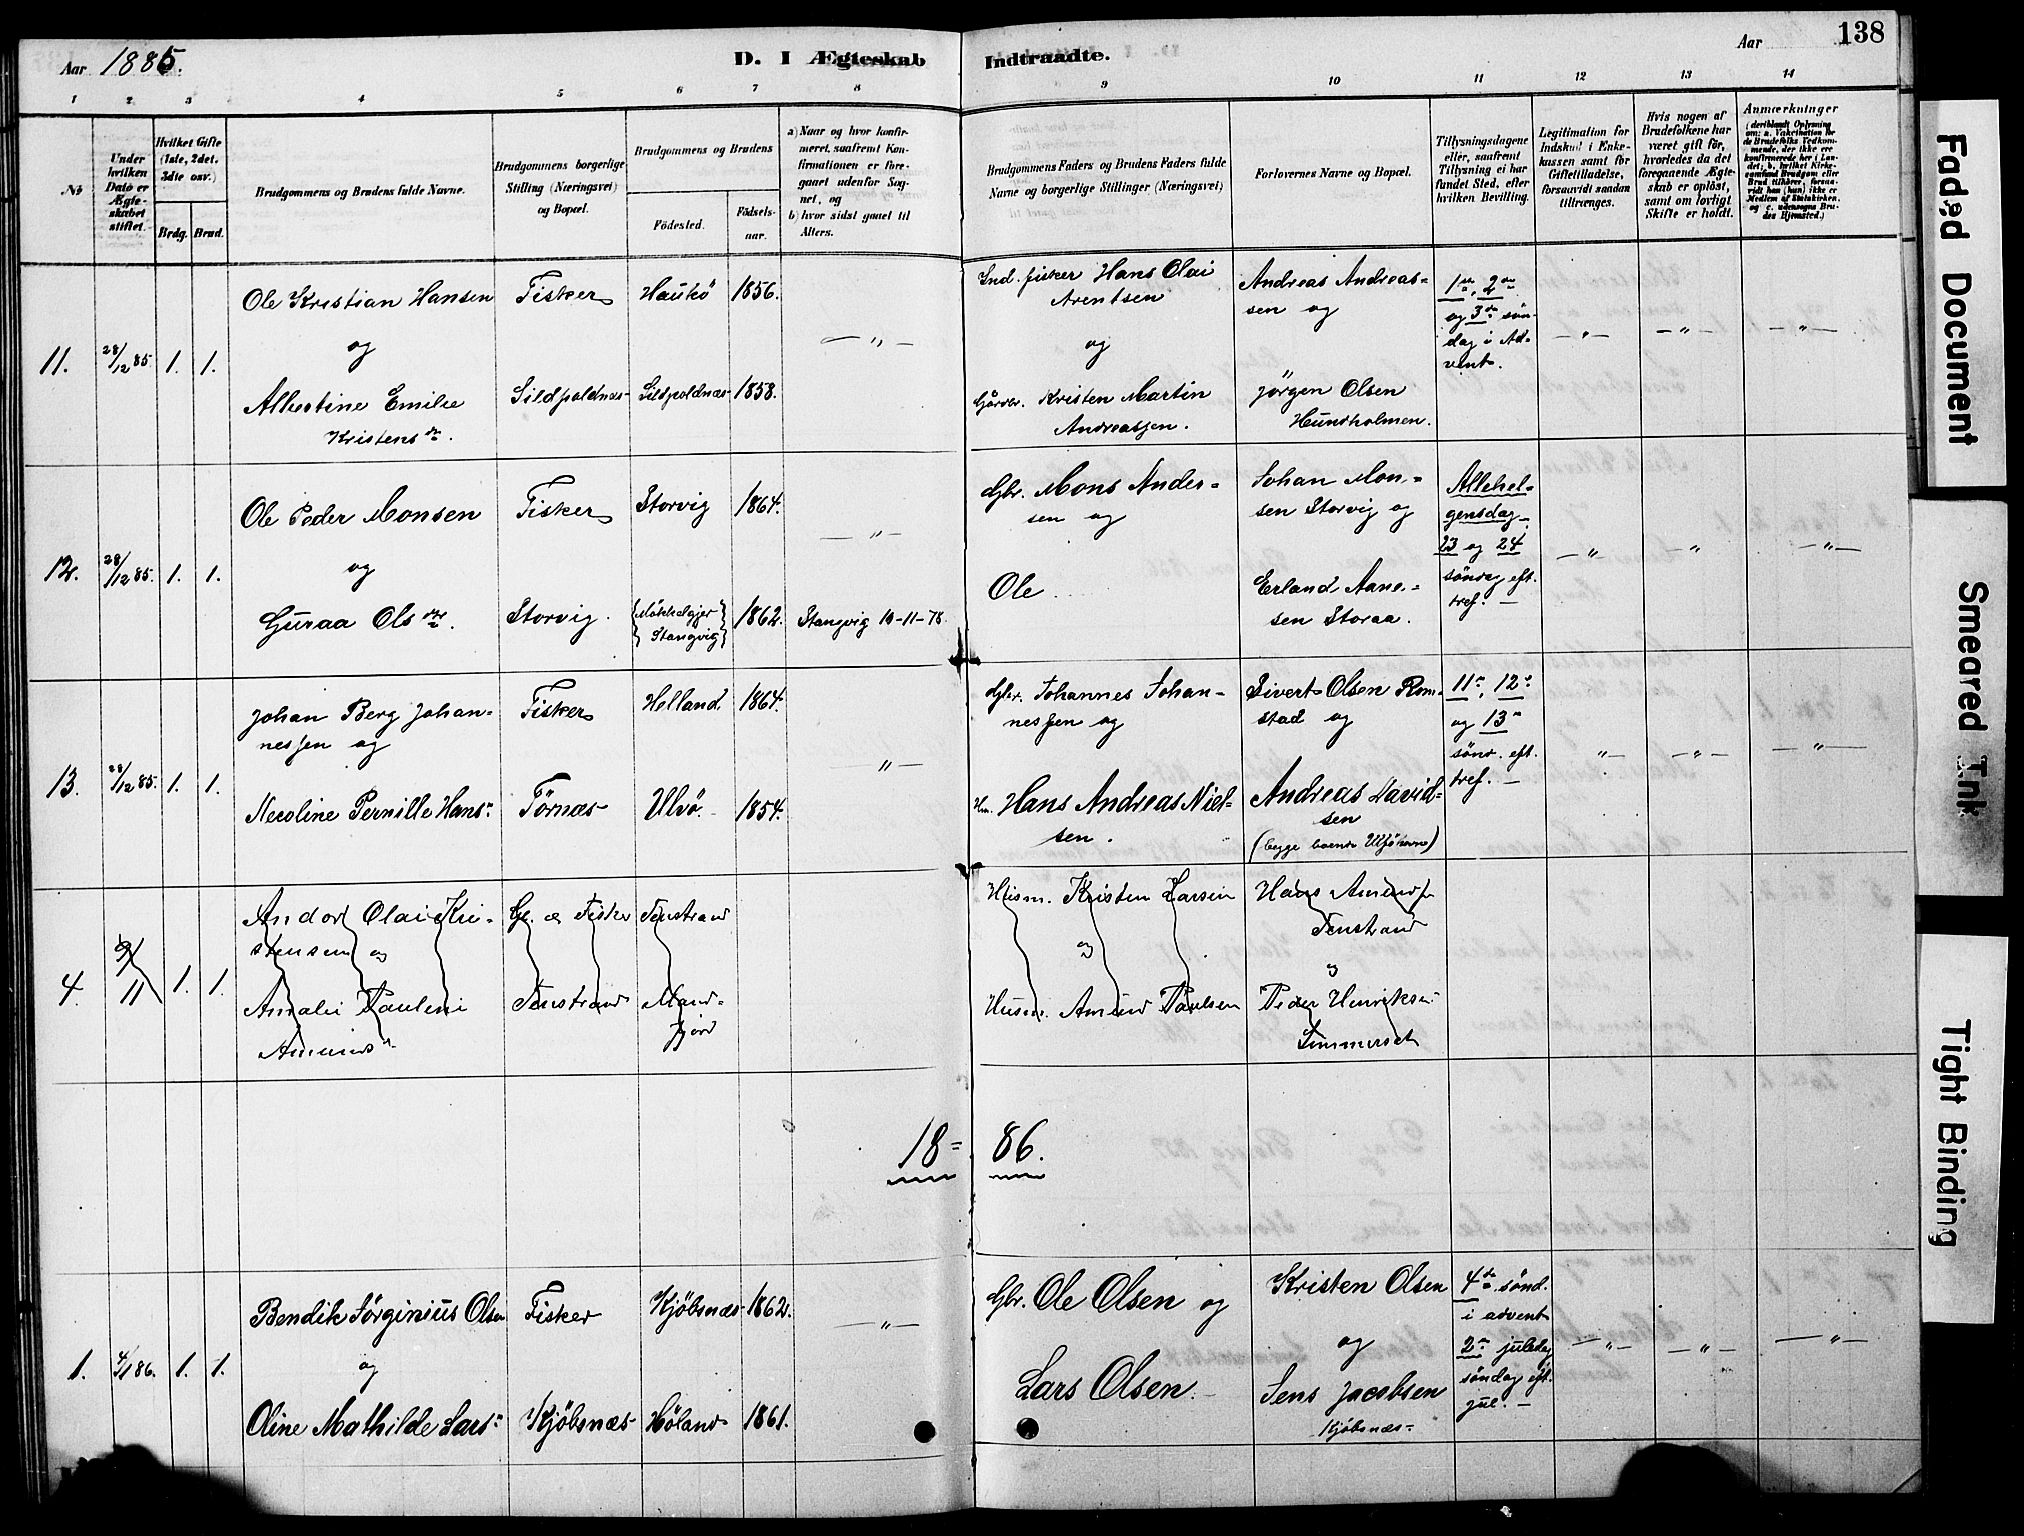 Aar 1885.
D. I Ægteskab
Indtraadte.
Aar
138
1 2 3 4 5 6 7 8 9 10 11 12 13 14
No
Under hvilken Dato er Ægteskabet stiftet.
Hvilket Gifte (1ste, 2det, 3die osv.)
Brdg. Brud.
Brudgommens og Brudens fulde Navne.
Brudgommens borgerlige Stilling (Næringsvei) og Bopæl.
Brudgommens og Brudens
Fødested.
Fødselsaar.
a) Naar og hvor konfirmeret, saafremt Konfirmationen er foregaaet udenfor Sognet, og
b) hvor sidst gaaet til Alters.
Brudgommens Faders og Brudens Faders fulde Navne og borgerlige Stillinger (Næringsvei)
Forlovernes Navne og Bopæl.
Tillysningsdagene eller, saafremt Tillysning ei har fundet Sted, efter hvilken Bevilling.
Legitimation for Indskud i Enkekassen samt for Giftetilladelse, forsaavidt saadan tiltrænges.
Hvis nogen af Brudefolkene har været gift før, hvorledes da det foregaaende Ægteskab er opløst, samt om lovligt Skifte er holdt.
Anmærkninger
(deriblandt Oplysning om: a. Vakcination for de Brudefolks Vedkommende, der ikke ere konfirmerede her i Landet; b. hvilket Kirkesamfund Brudgom eller Brud tilhører, forsaavidt han (hun) ikke er Medlem af Statskirken, og c. udensogns Brudes Hjemsted.)
11. 28/12 85. 1. 1.
Ole Kristian Hansen
og
Albertine Emilie
Kristensdr.
Fisker
Sildpoldnæs
Haukø 1856.
Sildpoldnæs 1858.
— " —
Ind. fisker Hans Olai
Arentsen
og
Gårdbr. Kristen Martin
Andreassen.
Andreas Andreas=
sen og
Jørgen Olsen
Hundholmen.
1ste, 2den
og 3de søn-
dag i Ad-
vent.
— " — — " — — " —
12. 28/12 85. 1. 1.
Ole Peder Monsen
og
Guraa Olsdtr.
Fisker
Storvig.
Storvig 1864.
Møkkelgjer
Stangvig 1862.
— " —
Stangvig 10-11-78.
Gbr. Mons Ander=
sen og
Ole
Johan Mon=
sen Storvig og
Erland Aane=
sen Storaa.
Allehel=
gensdag
23 og 24
søndag eft.
tref. —
— " — — " — — " —
13. 28/12 85. 1. 1.
Johan Berg Johan=
nessen og
Necoline Pernille Hansdr
Fisker
Tørnæs
Helland 1864.
Ulvø. 1854.
— " —
Gbr. Johannes Johan=
nessen og
Hm. Hans Andreas Niel=
sen.
Sivert Olsen Rom=
stad og
Andreas David=
sen
(begge boende Ulføhavn)
11te, 12te
og 13de
sønd. eft.
tref. —
— " — — " — — " —
4. 9/11 1. 1.
Andor Olai Kri=
stensen og
Amalie Pauleni
Amundsdr
G. og Fisker
Tenstrand
Tenstrand
Mand=
fjord
Husm. Kristen Larsen
og
Husm. Amund Paulsen
Hans Amunds.
Tenstrand
og
Peder Henriksen
Simmerset
18= 86.
1. 4/1 86. 1. 1.
Bendik Jørginius Olsen
og
Oline Mathilde Larsdr
Fisker
Kjøbsnæs
Kjøbsnæs 1862.
Høland 1861.
— " —
Gbr. Ole Olsen og
Lars Olsen. —
Kristen Olsen
og
Jens Jacobsen
Kjøbsnæs
4de sønd.
i advent
2en juledag
søndag eft.
jul. —
— " — — " — — " —
Faded Document
Smeared Ink
Tight Binding